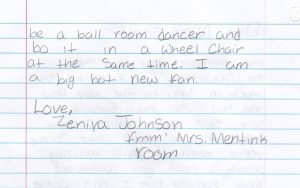 be a ball room dancer and
bo it in a wheel chair
at the same time. I am
a big bot new fan.
Love,
Zeniya Johnson
from: Mrs. Mentink
room